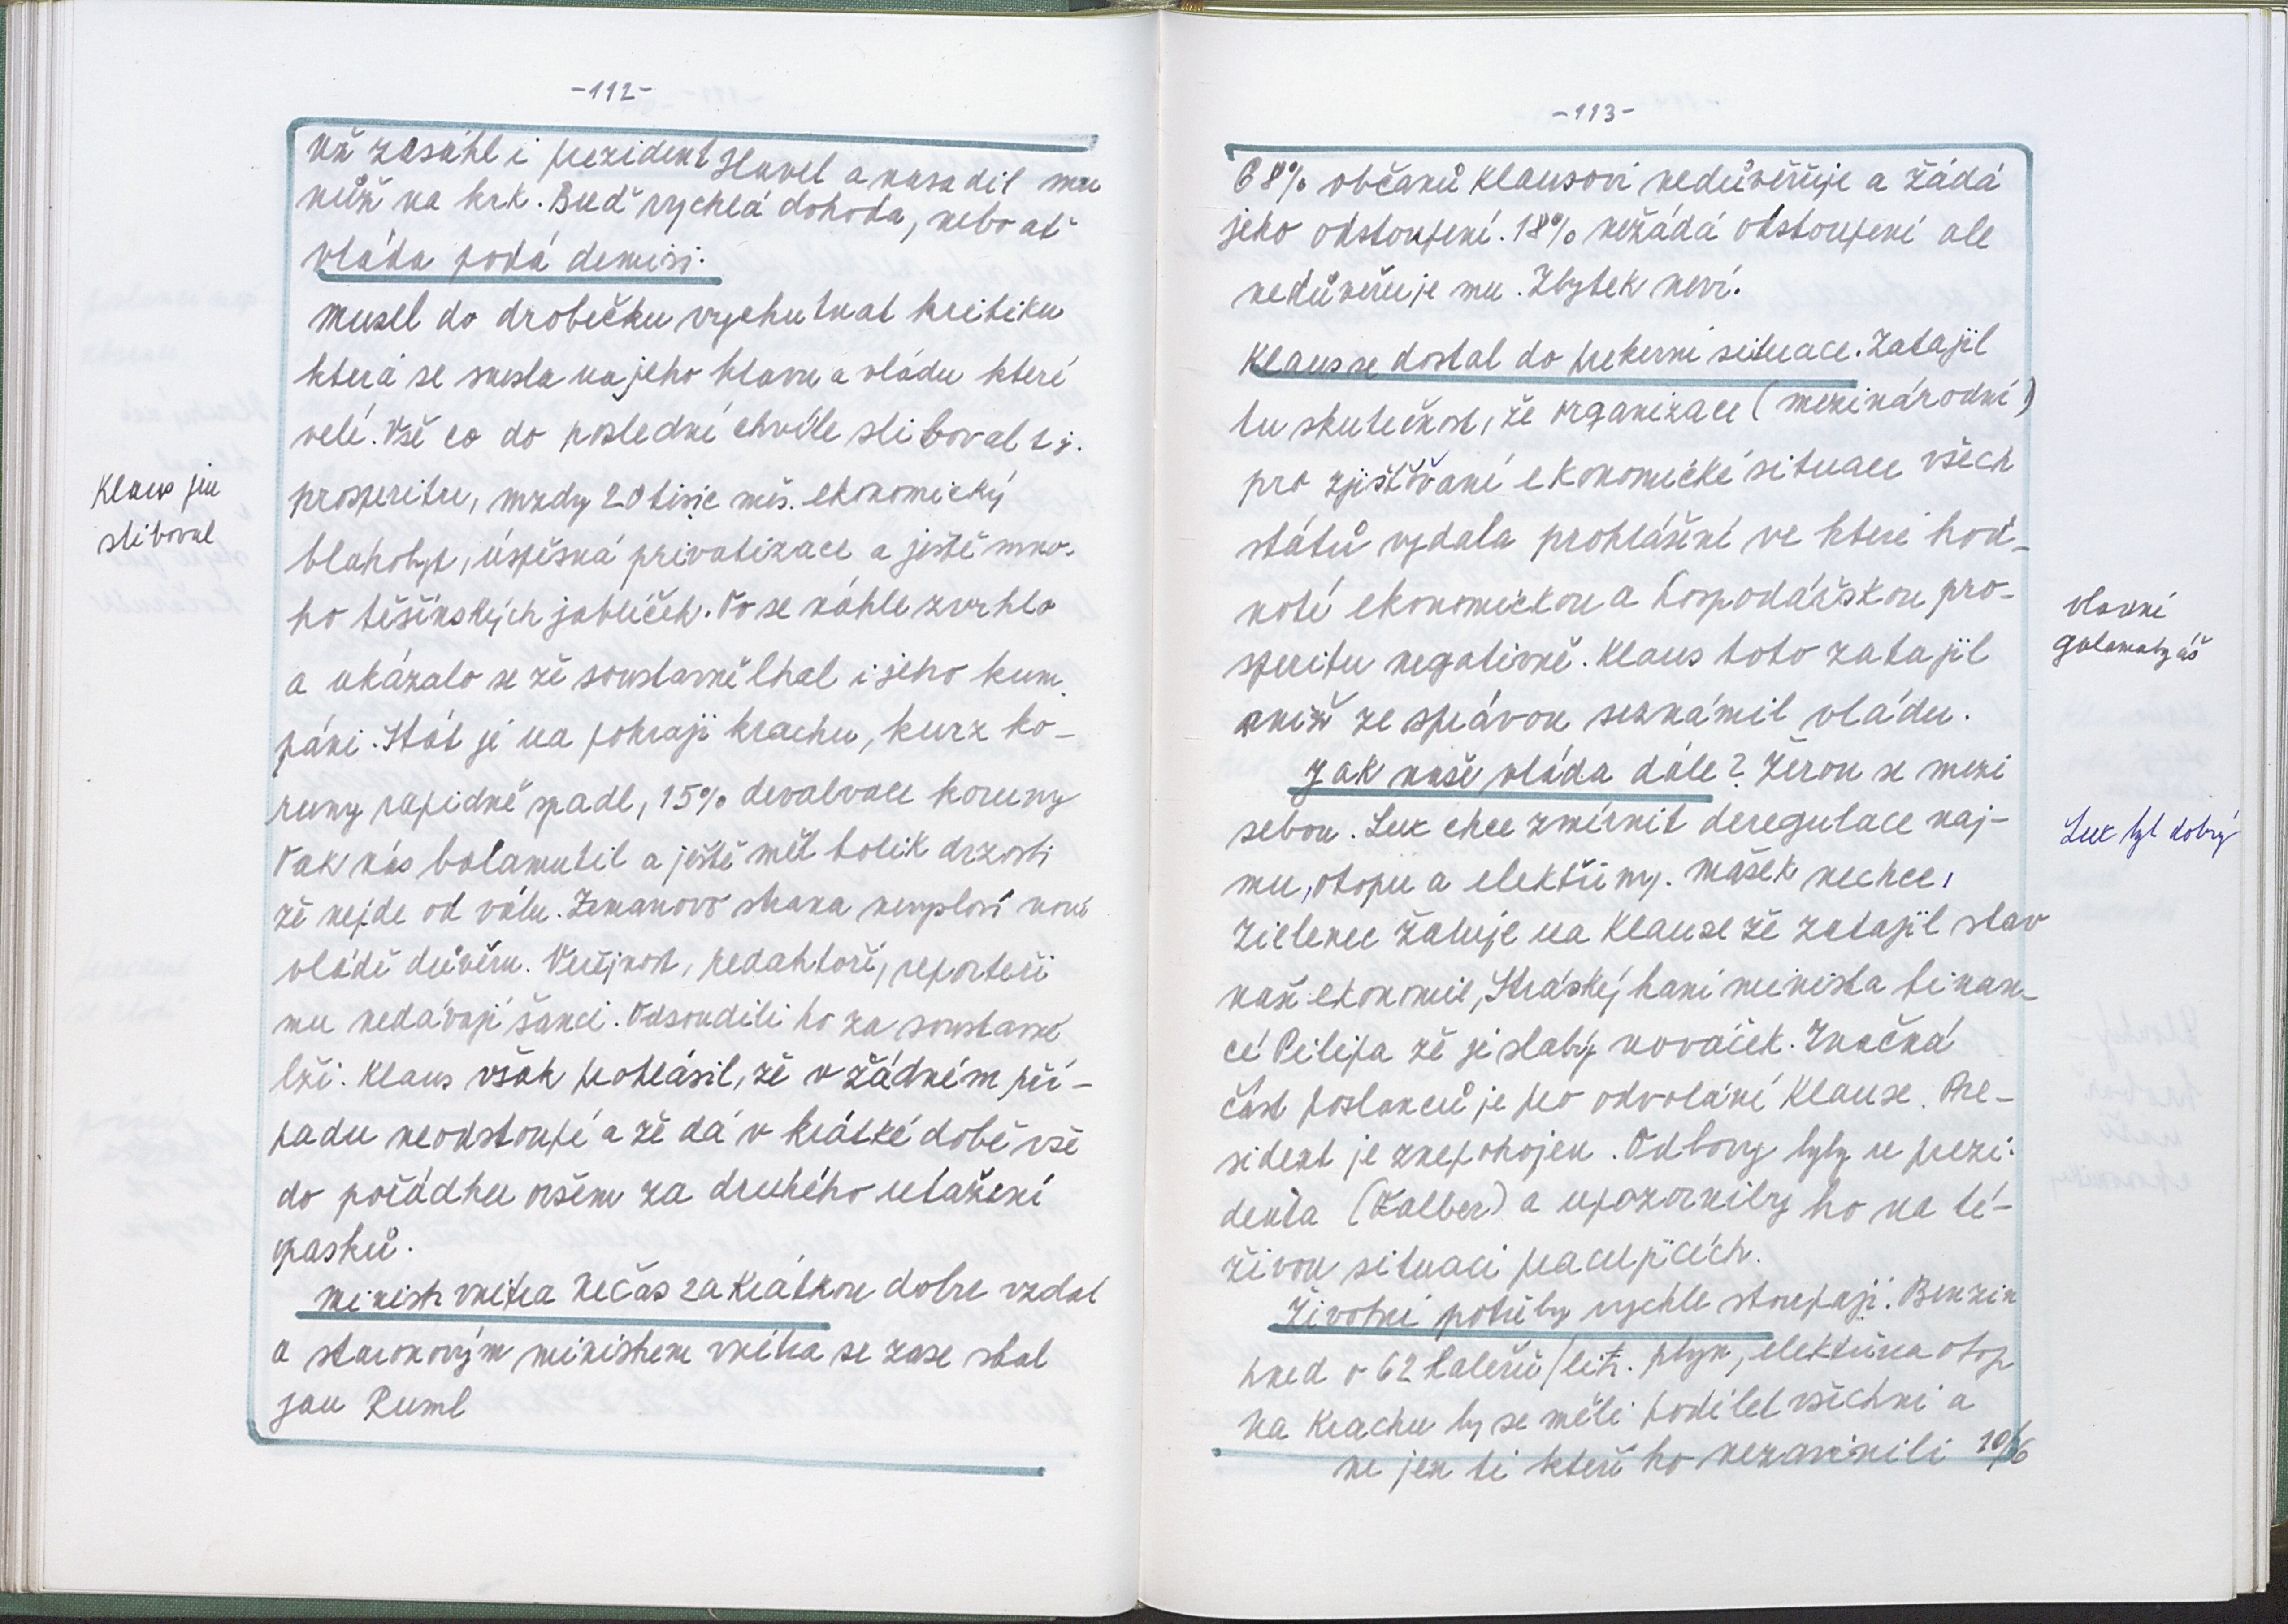 -112-
Už zasáhl i prezident Havel a nasadil mu
nůž na krk. Buď rychlá dohoda, nebo ať
vláda podá demisi.
Musel do drobečku vychutnat kritiku
která se snesla na jeho hlavu a vládu které
velí. Vše co do poslední chvíle sliboval tj.
prosperitu, mzdy 20 tisíc měs. ekonomický
blahobyt, úspěsná privatizace a ještě mno-
ho těšínských jablíček. To se náhle zvrhlo
a ukázalo se že soustavně lhal i jeho kum-
páni. Stát je na pokraji krachu, kurz ko-
runy rapidně spadl, 15% devalvace koruny
Tak nás balamutil a ještě měl tolik drzosti
že nejde od válu. Zemanova strana nevysloví nové
vládě důvěru. Veřejnost, redaktoři, reporteři
mu nedávají šanci. Odsoudili ho za soustavné
lži. Klaus však prohlásil, že v žádném pří-
padu neodstoupí a že dá v krátké době vše
do pořádku ovšem za druhého utažení
opasků.
Ministr vnitra Nečas za krátkou dobu vzdal
a staronovým ministrem vnitra se zase stal
Jan Ruml
Klaus jen
sliboval
-113-
68% občanů Klausovi nedůvěřuje a žádá
jeho odstoupení. 18% nežádá odstoupení ale
nedůvěřuje mu. Zbytek neví.
Klaus se dostal do prekerní situace. Zatajil
tu skutečnost, že organizace (mezinárodní)
pro zjišťování ekonomické situace všech
států vydala prohlášení ve které hod-
notí ekonomickou a hospodářskou pro-
speritu negativně. Klaus toto zatajil
aniž ze správou seznámil vládu.
Jak naše vláda dále? Žerou se mezi
sebou. Lux chce zmírnit deregulace náj-
mu, otopu a elektřiny. Mašek nechce,
Zielenec žaluje na Klause že zatajil stav
naší ekonomie, Stráský haní ministra finan-
cí Pilipa že je slabý nováček. Značná
část poslanců je pro odvolání Klause. Pre-
sident je znepokojen. Odbory byly u prezi-
denta (Falbr) a upozornily ho na tí-
živou situaci pracujících.
Životní potřeby rychle stoupají. Benzin
hned o 62 haléřů/litr. plyn, elektřina otop
Na krachu by se měli podílet všichni a
ne jen ti kteří ho nezavinili 10/6
vlavní
galamatyáš
Lux byl dobrý